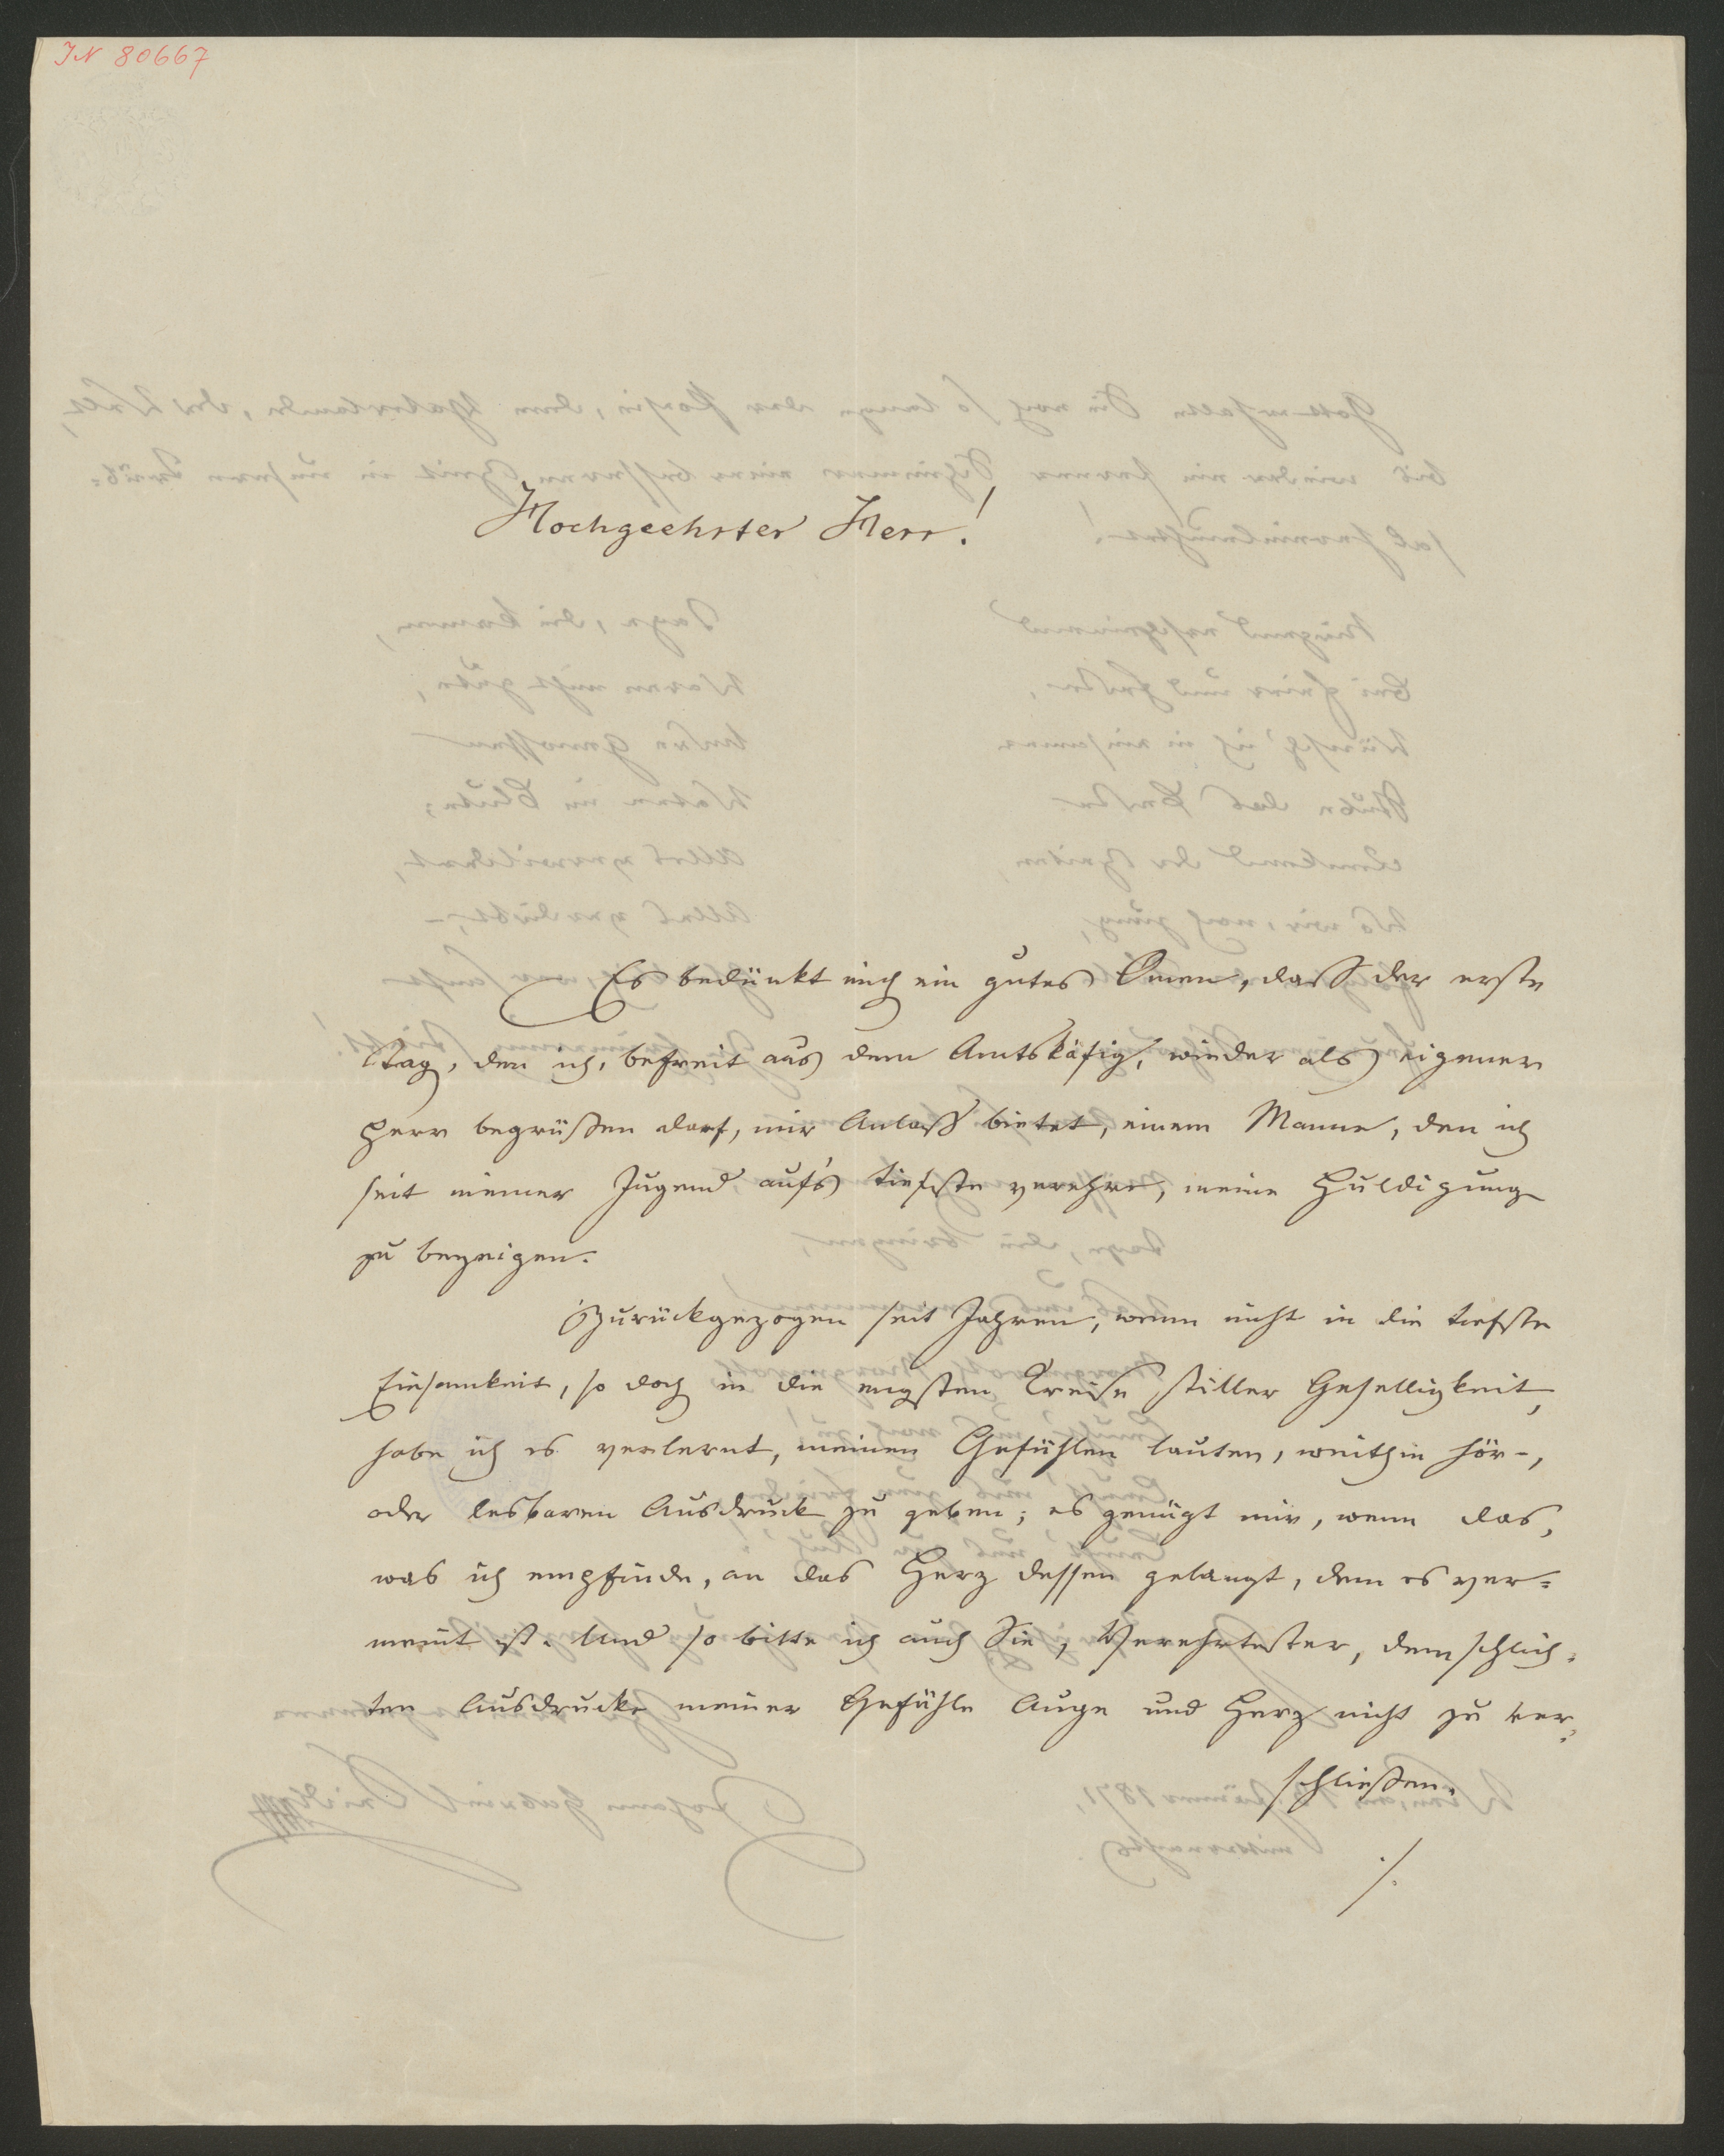 IN 80667
Hochgeehrter Herr!
Es bedünkt mich ein gutes Omen, daß der erste
Tag, den ich, befreit aus dem Amtskäfig, wieder als eigener
Herr begrüßen darf, mir Anlaß bietet, einem Manne, den ich
seit meiner Jugend auf's tiefste verehre, meine Huldigung
zu bezeigen.
Zurückgezogen seit Jahren, wenn nicht in die tiefste
Einsamkeit, so doch in die engsten Kreise stiller Geselligkeit,
habe ich es verlernt, meinen Gefühlen lauten, weithin hör-,
oder lesbaren Ausdruck zu geben; es genügt mir, wenn das,
was ich empfinde, an das Herz dessen gelangt, dem es ver=
meint ist. Und so bitte ich auch Sie, Verehrtester, dem schlich=
ten Ausdrucke meiner Gefühle Auge und Herz nicht zu ver=
schließen.
./.